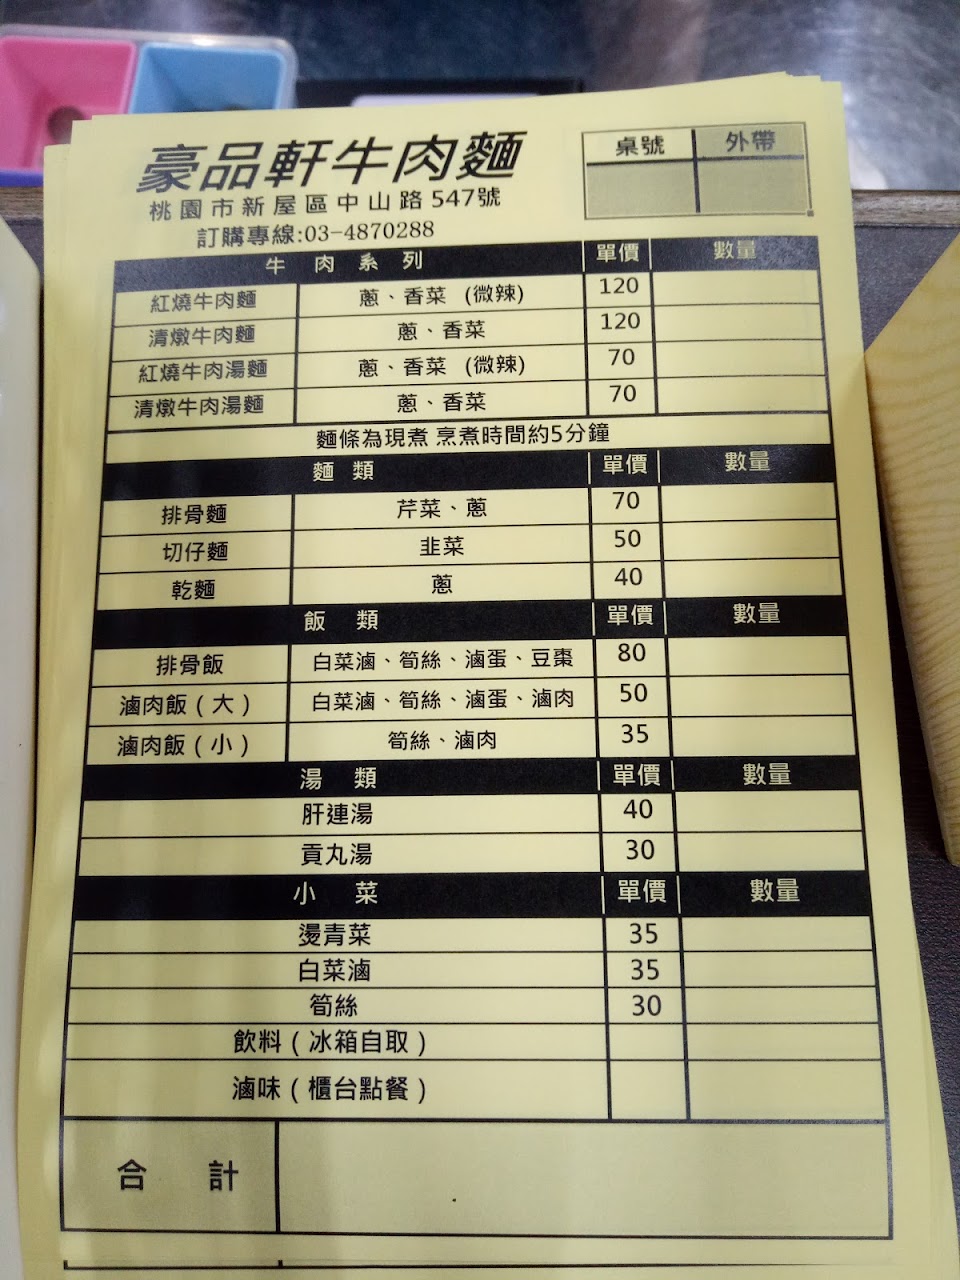 豪品軒牛肉麵
桌號 外帶
桃園市新屋區中山路547號
訂購專線:03-4870288
牛肉系列 單價 數量
紅燒牛肉麵 蔥、香菜 (微辣) 120
清燉牛肉麵 蔥、香菜 120
紅燒牛肉湯麵 蔥、香菜 (微辣) 70
清燉牛肉湯麵 蔥、香菜 70
麵條為現煮 烹煮時間約5分鐘
麵類 單價 數量
排骨麵 芹菜、蔥 70
切仔麵 韭菜 50
乾麵 蔥 40
飯類 單價 數量
排骨飯 白菜滷、筍絲、滷蛋、豆棗 80
滷肉飯(大) 白菜滷、筍絲、滷蛋、滷肉 50
滷肉飯(小) 筍絲、滷肉 35
湯類 單價 數量
肝連湯 40
貢丸湯 30
小菜 單價 數量
燙青菜 35
白菜滷 35
筍絲 30
飲料(冰箱自取)
滷味(櫃台點餐)
合計